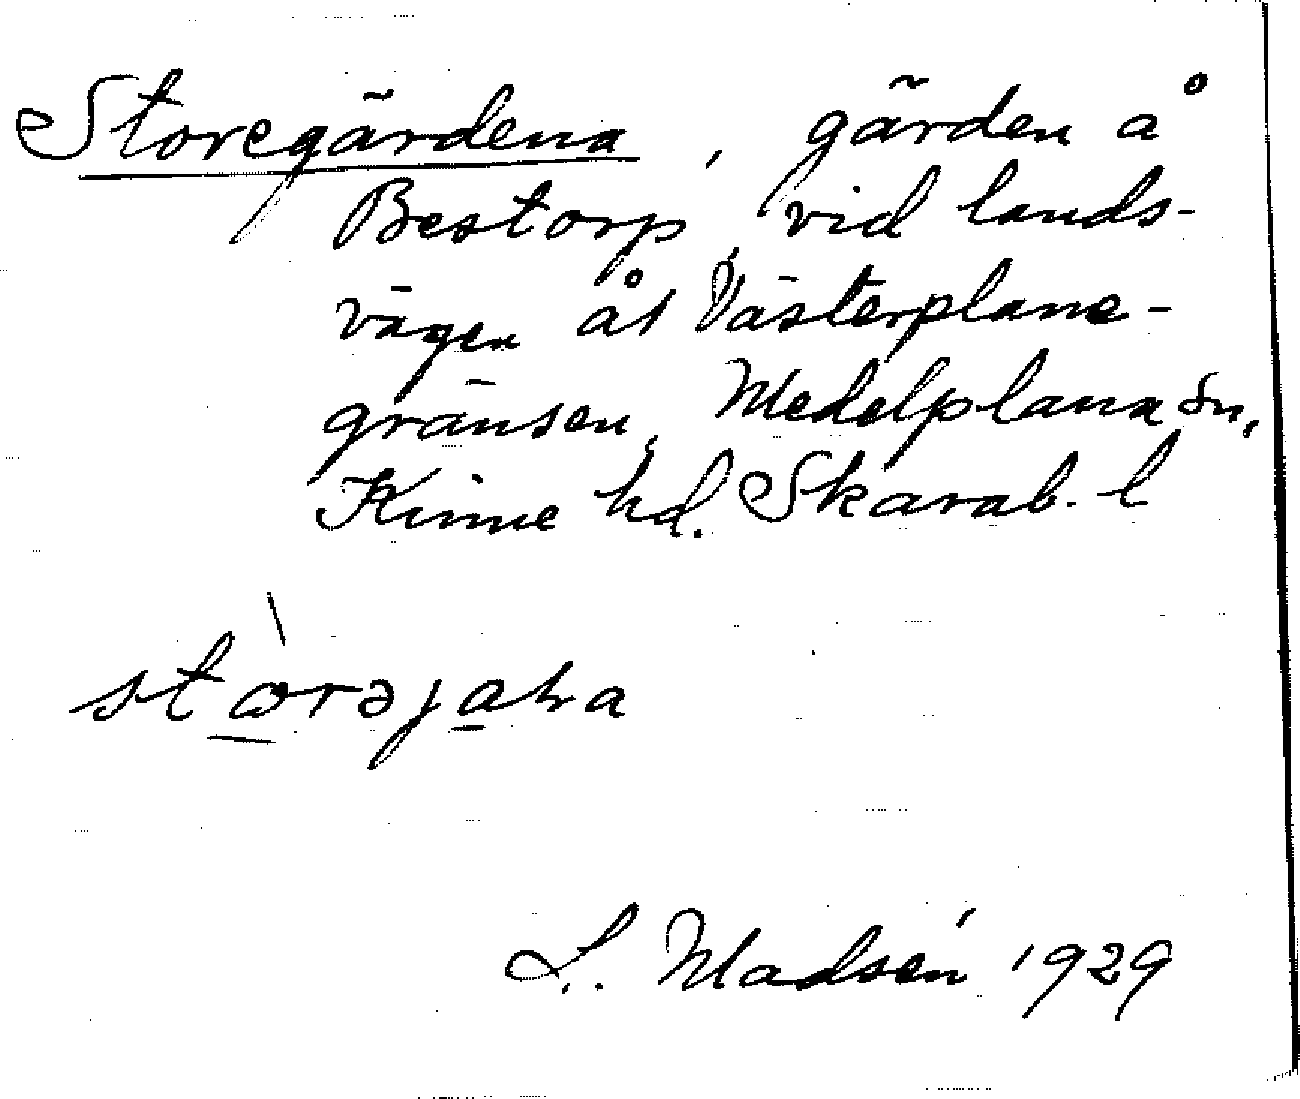 Storegärdena, gärden å
Bestorp, vid lands-
vägen åt Västerplane-
gränsen, Medelplana sn,
Kinne hd. Skarab. l
L. Madsén 1929